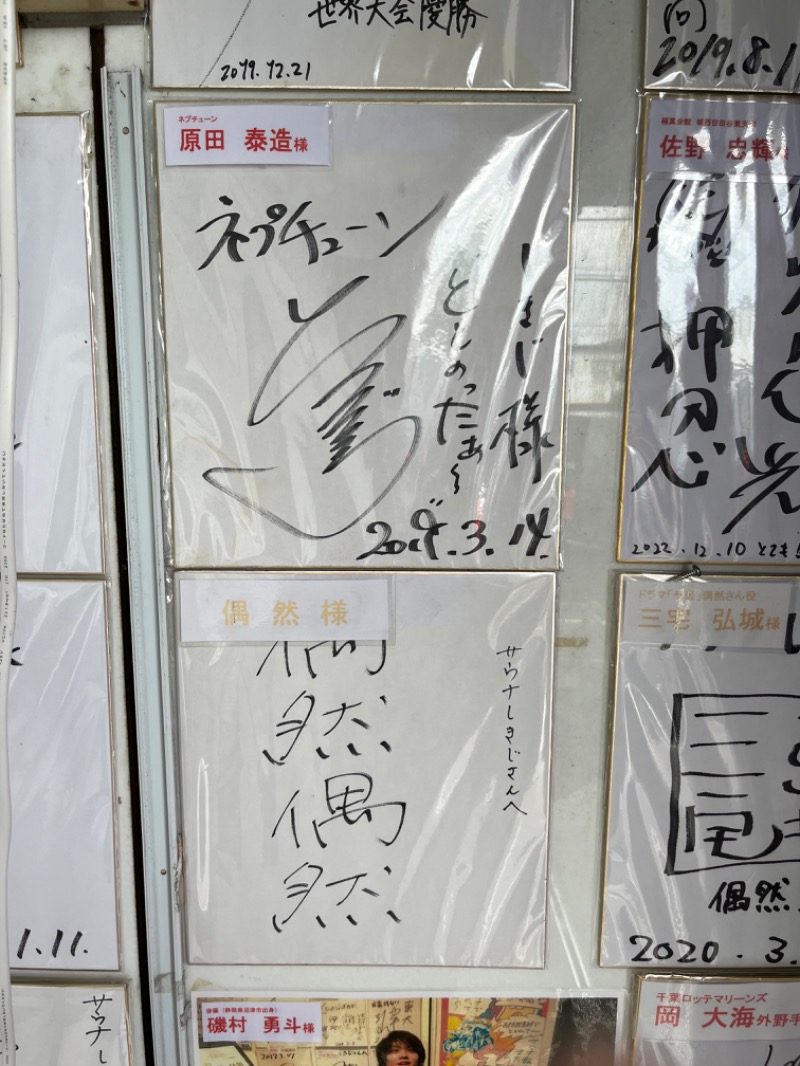 世界大会優勝
2019.12.21
2019.8.1
ネプチューン
原田 泰造様
ネプチューン
しきじ様
ととのったあ〜
2019.3.14.
佐野 忠輝様
押忍
2022.12.10
偶然様
偶然
偶然
サウナしきじさんへ
ドラマ「サ道」偶然さん役
三宅 弘城様
三宅
偶然
2020.3.
1.11.
サウナし
俳優(静岡県沼津市出身)
磯村 勇斗様
千葉ロッテマリーンズ
岡 大海外野手